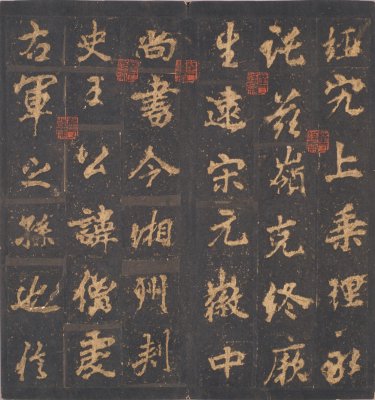 究上乘理永
託茲嶺克終厥
生逮宋元徽中
尚書令湘州刺
史王公諱僧虔
右軍之孫也信